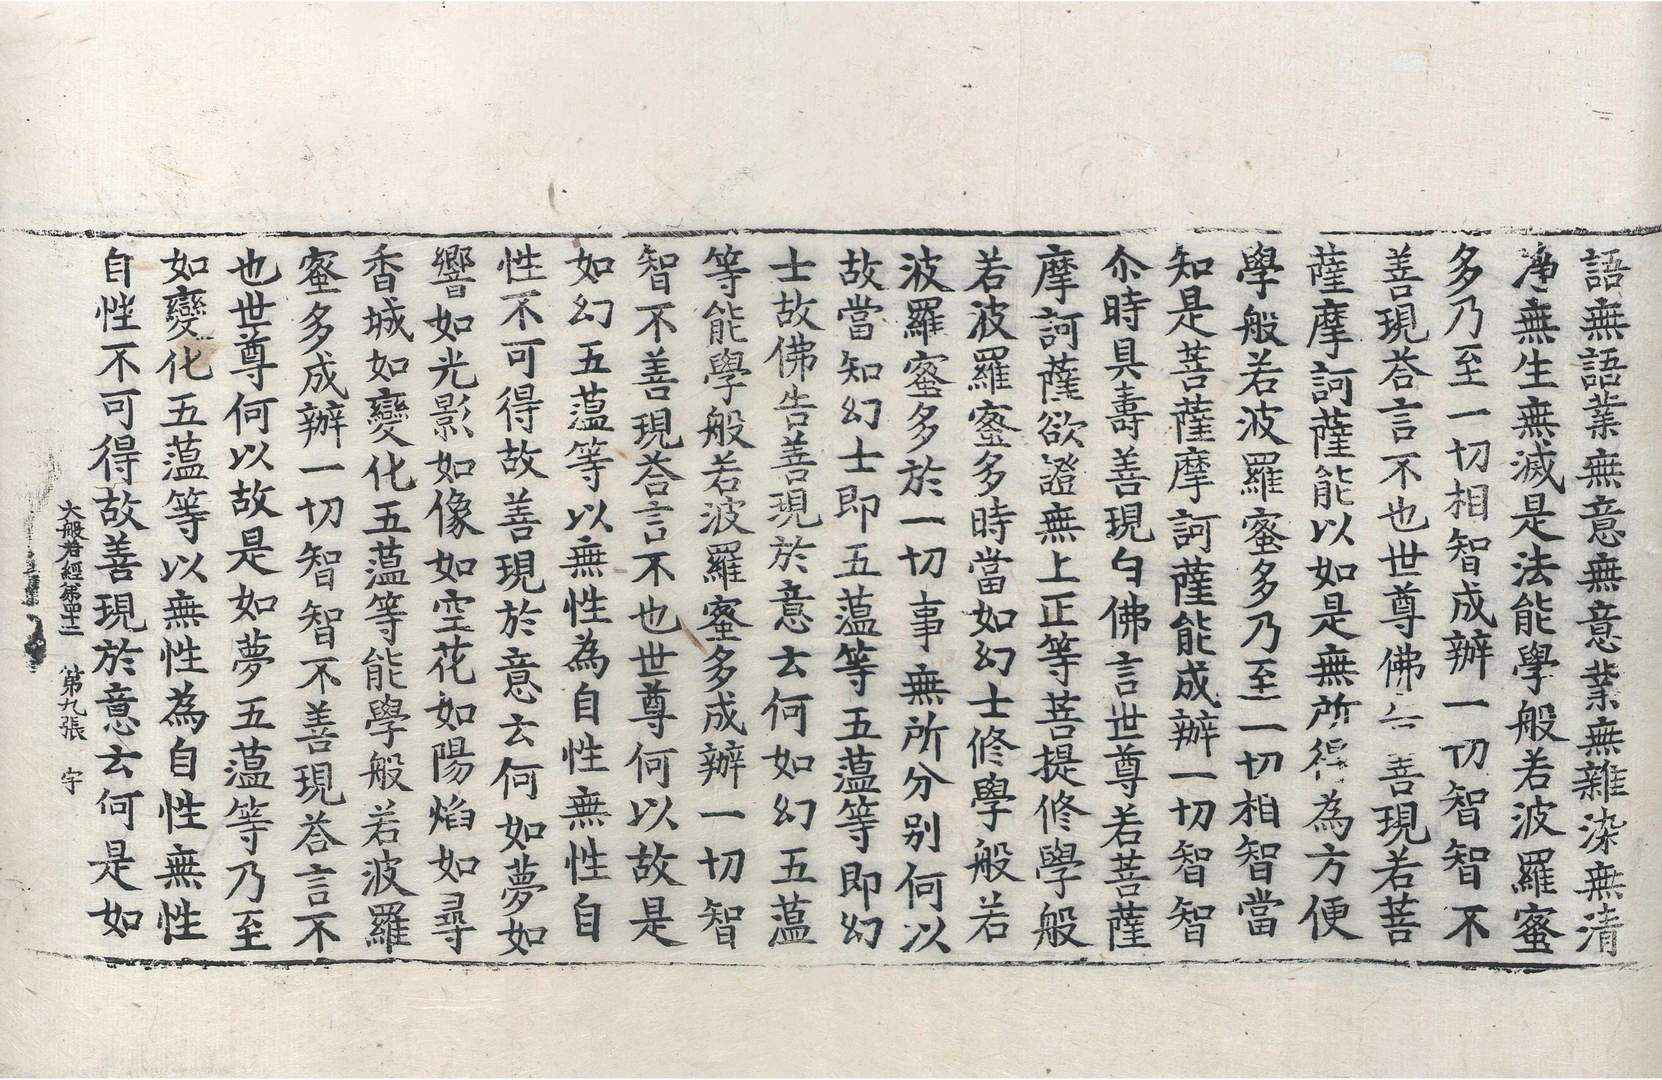 語無語業無意無意業無雜染無清
淨無生無滅是法能學般若波羅蜜
多乃至一切相智成辦一切智智不
善現荅言不也世尊佛告善現若菩
薩摩訶薩能以如是無所得為方便
學般若波羅蜜多乃至一切相智當
知是菩薩摩訶薩能成辦一切智智
尒時具壽善現白佛言世尊若菩薩
摩訶薩欲證無上正等菩提修學般
若波羅蜜多時當如幻士修學般若
波羅蜜多於一切事無所分別何以
故當知幻士即五薀等五薀等即幻
士故佛告善現於意云何如幻五薀
等能學般若波羅蜜多成辦一切智
智不善現荅言不也世尊何以故是
如幻五薀等以無性為自性無性自
性不可得故善現於意云何如夢如
響如光影如像如空花如陽焰如尋
香城如變化五薀等能學般若波羅
蜜多成辦一切智智不善現荅言不
也世尊何以故是如夢五薀等乃至
如變化五薀等以無性為自性無性
自性不可得故善現於意云何是如
大般若經第四十二 第九張 字